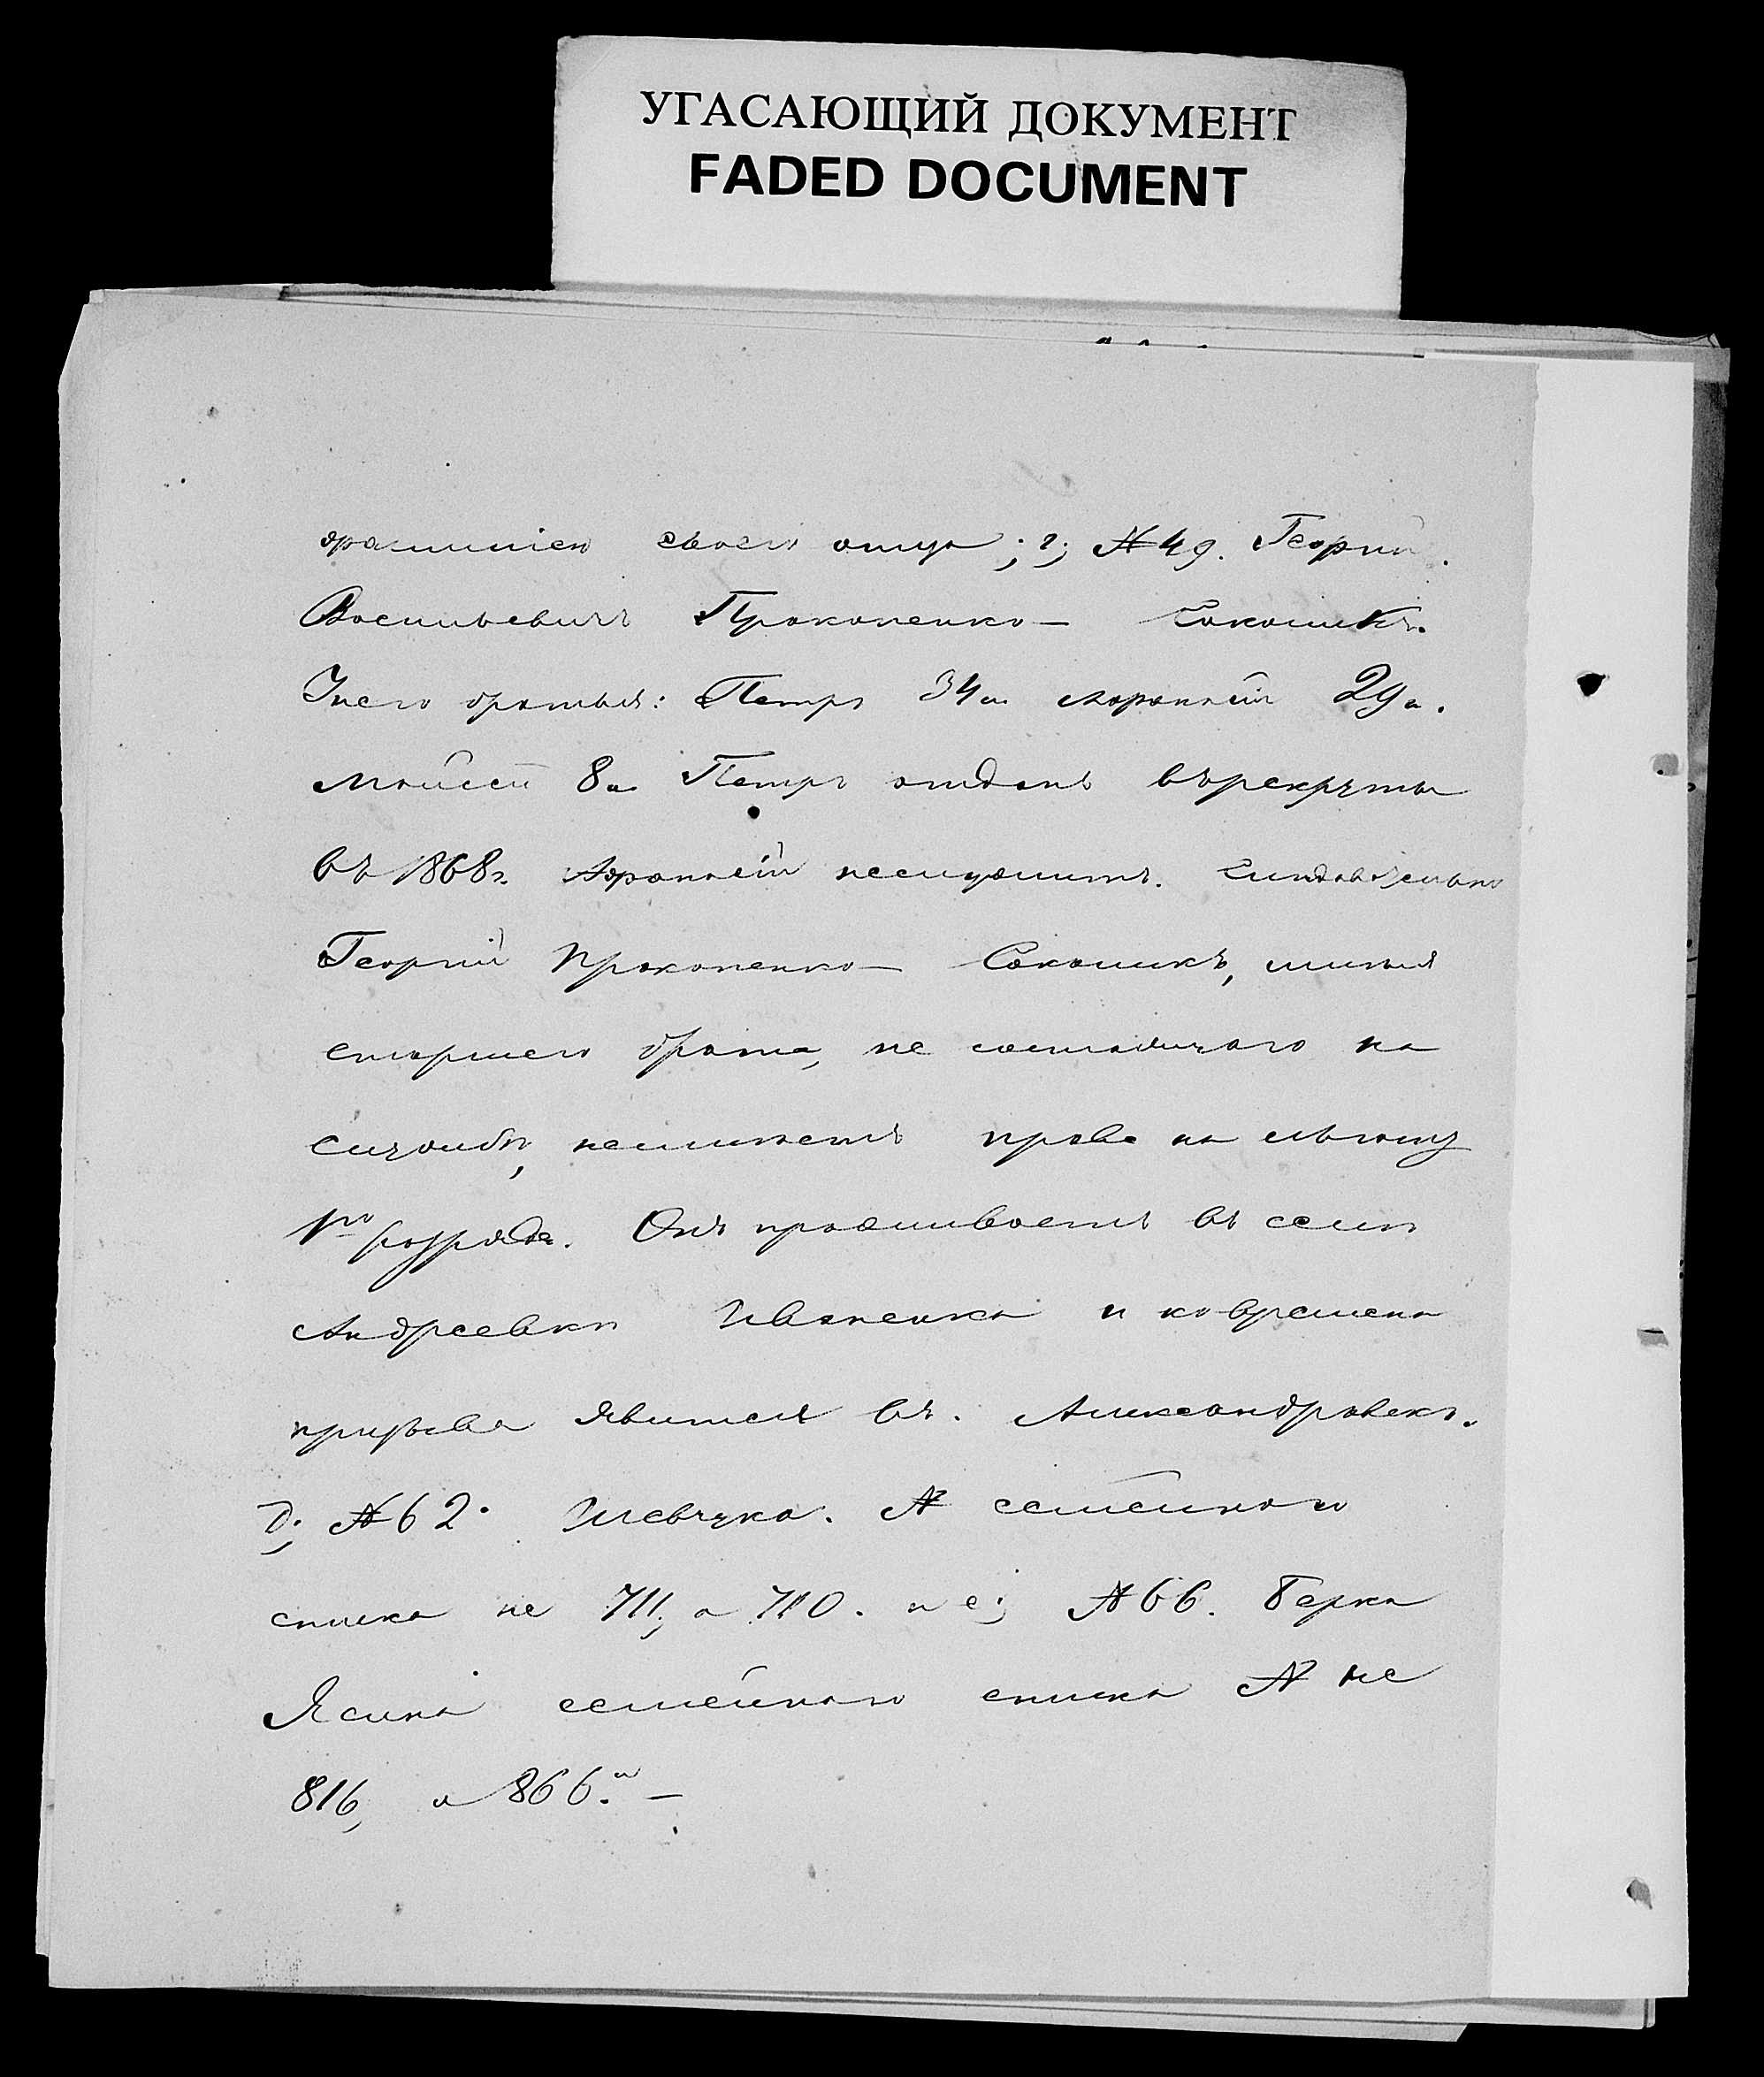 УГАСАЮЩИЙ ДОКУМЕНТ
FADED DOCUMENT
своего отца; г; №49. Георгій
Васильевичъ Прокопенко— Соколикъ.
Унего братья: Петръ 34 л. Афанасій 29 л.
Мойсей 8 л. Петръ отданъ върекруты
въ 1868 г. Афанасій неслужитъ. Слѣдовательно
Георгій Прокопенко— Соколикъ, имѣя
старшего брата, не состоящаго на
службѣ, неимѣетъ права на льготу
1го разряда. Онъ проживаетъ въ селѣ
Андреевкѣ Иваненка и ковремени
призыва явится въ. Александровскъ.
д; №62. Шевчука. № семейнаго
списка не 711, а 710. и е; №66. Берка
Ясина семейнаго списка № не
816, а 866." —